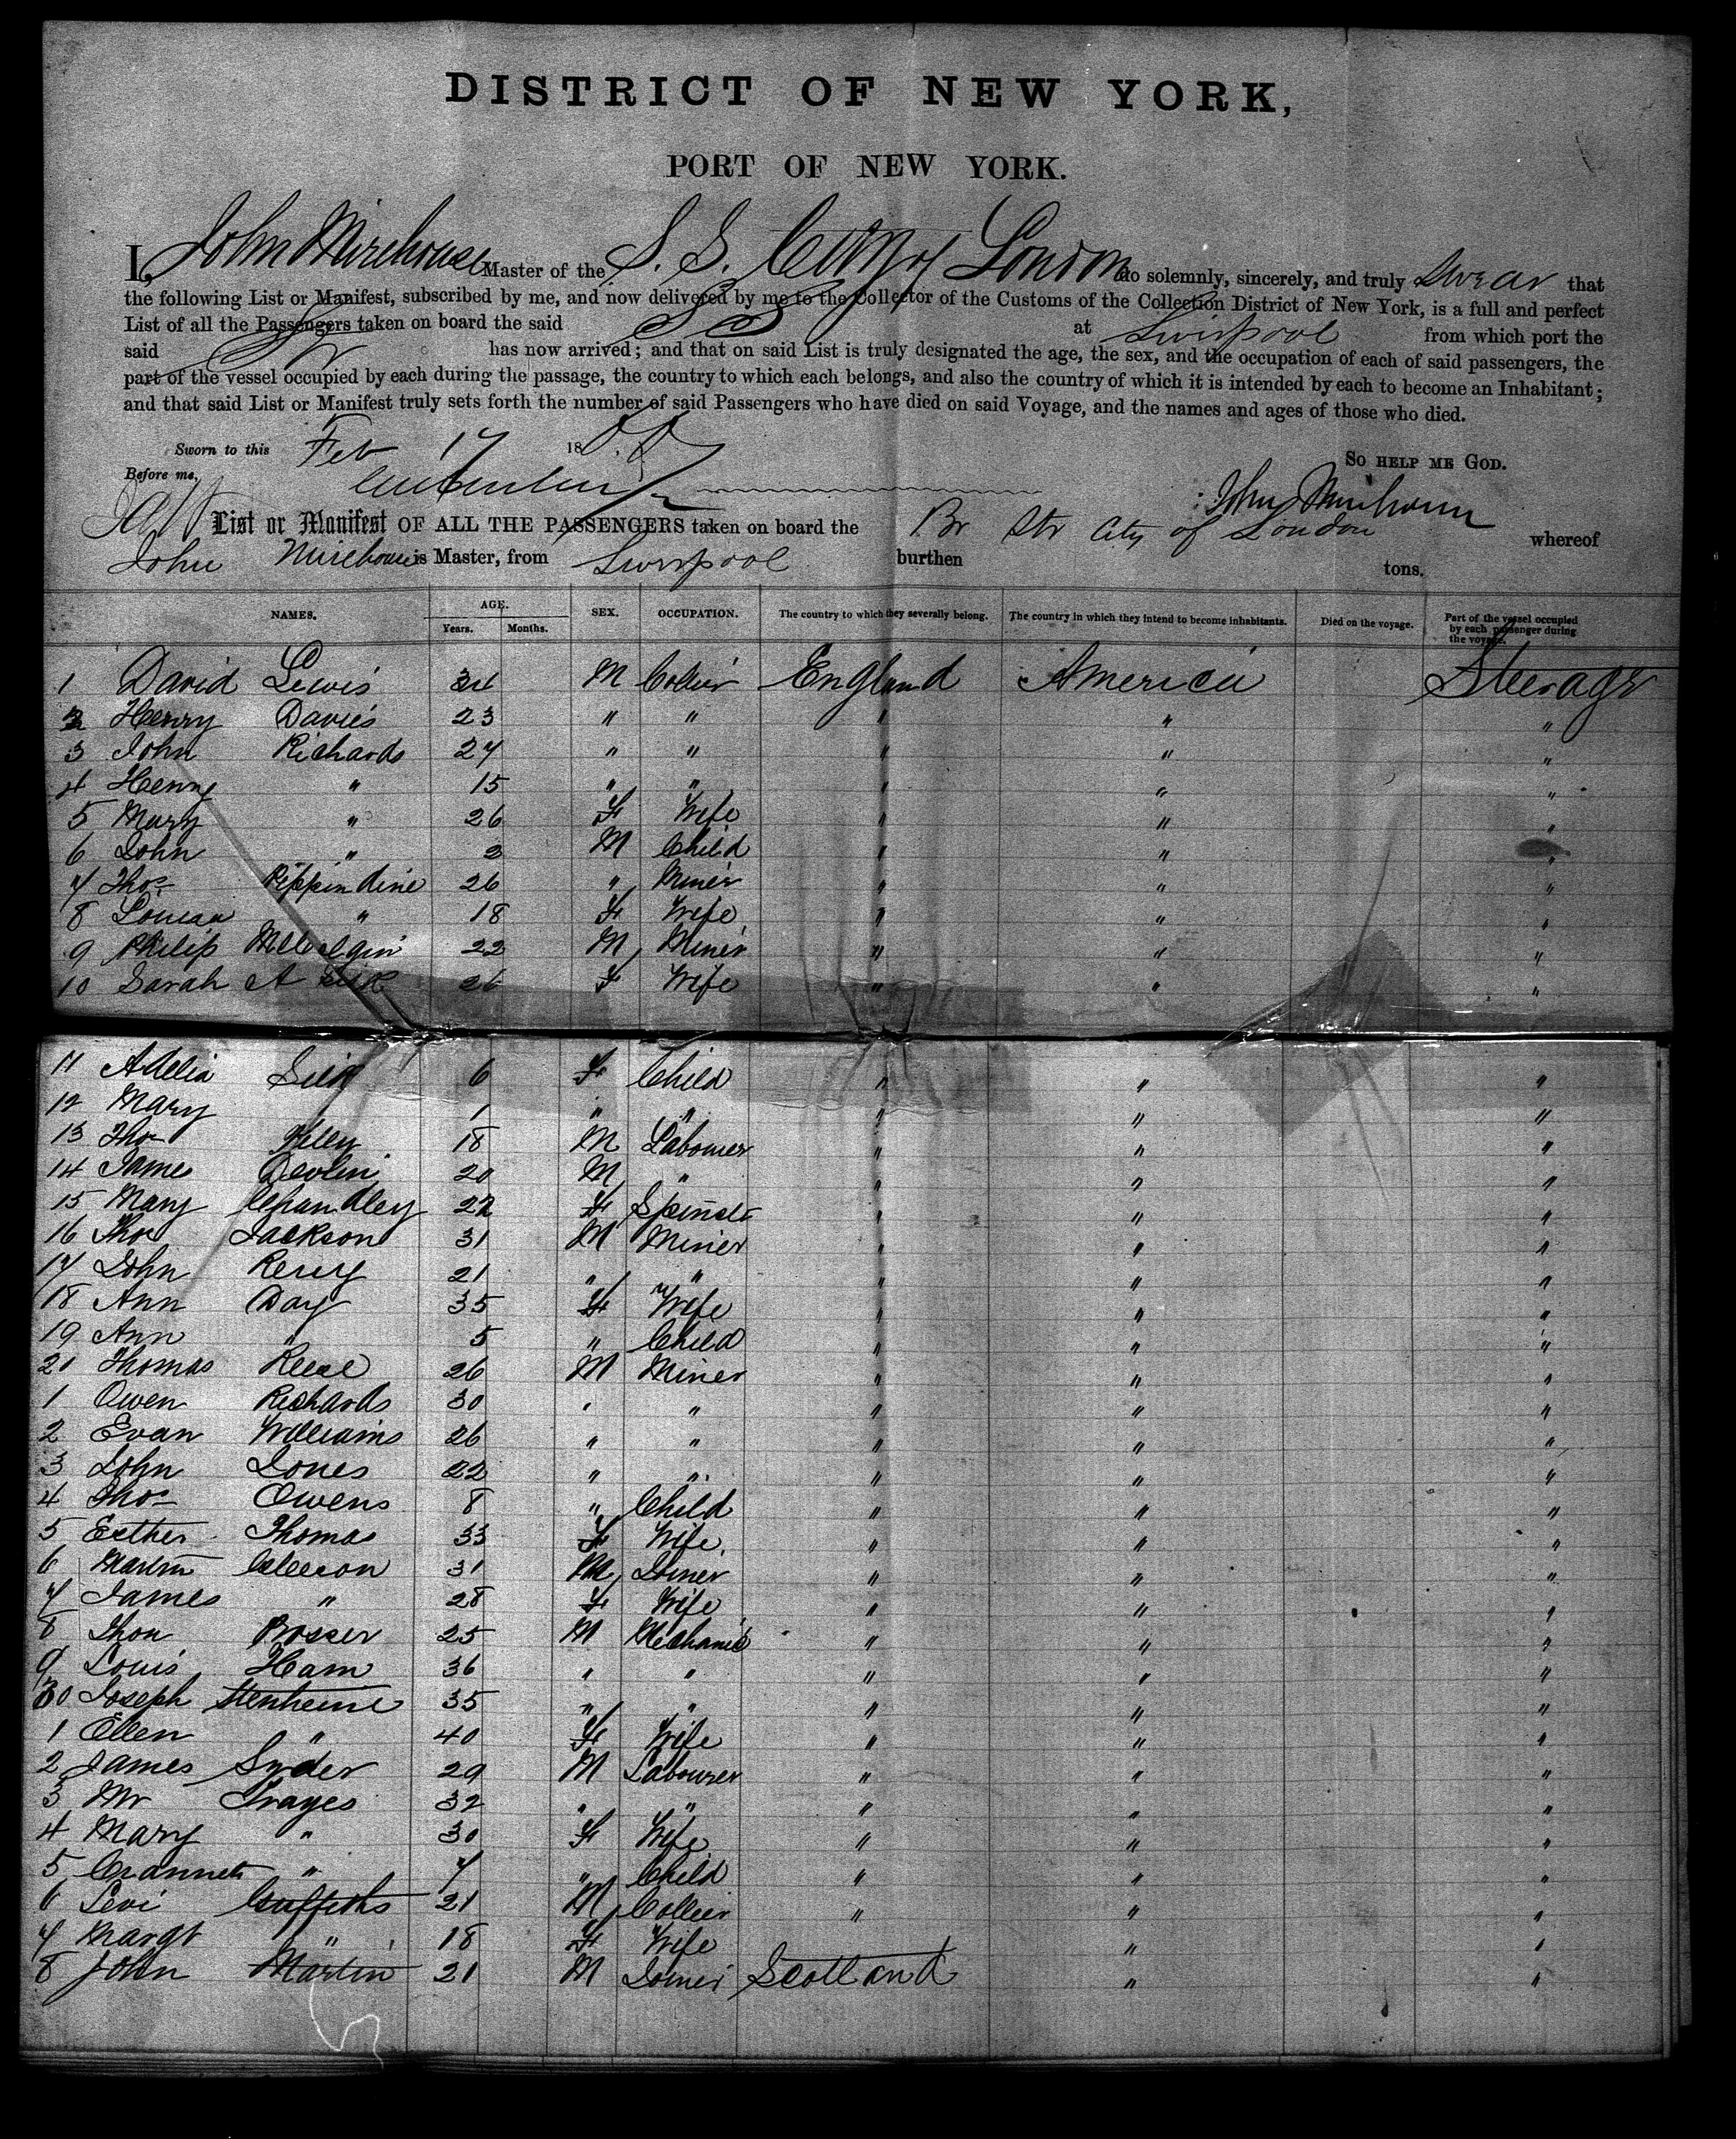 DISTRICT OF NEW YORK,
PORT OF NEW YORK.
I, John Mirehouse Master of the S. S. City of London do solemnly, sincerely, and truly swear that
the following List or Manifest, subscribed by me, and now delivered by me to the Collector of the Customs of the Collection District of New York, is a full and perfect
List of all the Passengers taken on board the said SS at Liverpool from which port the
said has now arrived; and that on said List is truly designated the age, the sex, and the occupation of each of said passengers, the
part of the vessel occupied by each during the passage, the country to which each belongs, and also the country of which it is intended by each to become an Inhabitant;
and that said List or Manifest truly sets forth the number of said Passengers who have died on said Voyage, and the names and ages of those who died.
Sworn to this Feb 17 18
So help me God.
Before me,
John Mirehouse
List or Manifest OF ALL THE PASSENGERS taken on board the Br Str City of London whereof
John Mirehouse is Master, from Liverpool burthen tons.
NAMES. AGE. Years. Months. SEX. OCCUPATION. The country to which they severally belong. The country in which they intend to become inhabitants. Died on the voyage. Part of the vessel occupied by each passenger during the voyage.
1 David Lewis 34 M Collier England America Steerage
2 Henry Davies 23 " " " " "
3 John Richards 27 " " " " "
4 Henry " 15 " " " " "
5 Mary " 26 F Wife " " "
6 John " 2 M Child " " "
7 Thos Pippin dine 26 " Miner " " "
8 Louisa " 18 F Wife " " "
9 Philip 22 M Miner " " "
10 Sarah A 26 F Wife " " "
11 Adelia 6 F Child " " "
12 Mary 1 " " " " "
13 Thos 18 M Labourer " " "
14 James Devlin 20 M " " " "
15 Mary Chandley 22 F Spinster " " "
16 Thos Jackson 31 M Miner " " "
17 John 21 " " " " "
18 Ann Day 35 F Wife " " "
19 Ann " 5 " Child " " "
20 Thomas Reese 26 M Miner " " "
1 Owen Richards 30 " " " " "
2 Evan Williams 26 " " " " "
3 John Jones 22 " " " " "
4 Thos Owens 8 " Child " " "
5 Esther Thomas 33 F Wife " " "
6 Martin Gleeson 31 M Joiner " " "
7 James " 28 F Wife " " "
8 Thos Prosser 25 M Mechanic " " "
9 Louis Ham 36 " " " " "
30 Joseph 35 " " " " "
1 Ellen " 40 F Wife " " "
2 James Syder 29 M Labourer " " "
3 Mr Trayes 32 " " " " "
4 Mary " 30 F Wife " " "
5 " 7 " Child " " "
6 Levi Griffiths 21 M Collier " " "
7 Margt " 18 F Wife " "
8 John Martin 21 M Joiner Scotland " "